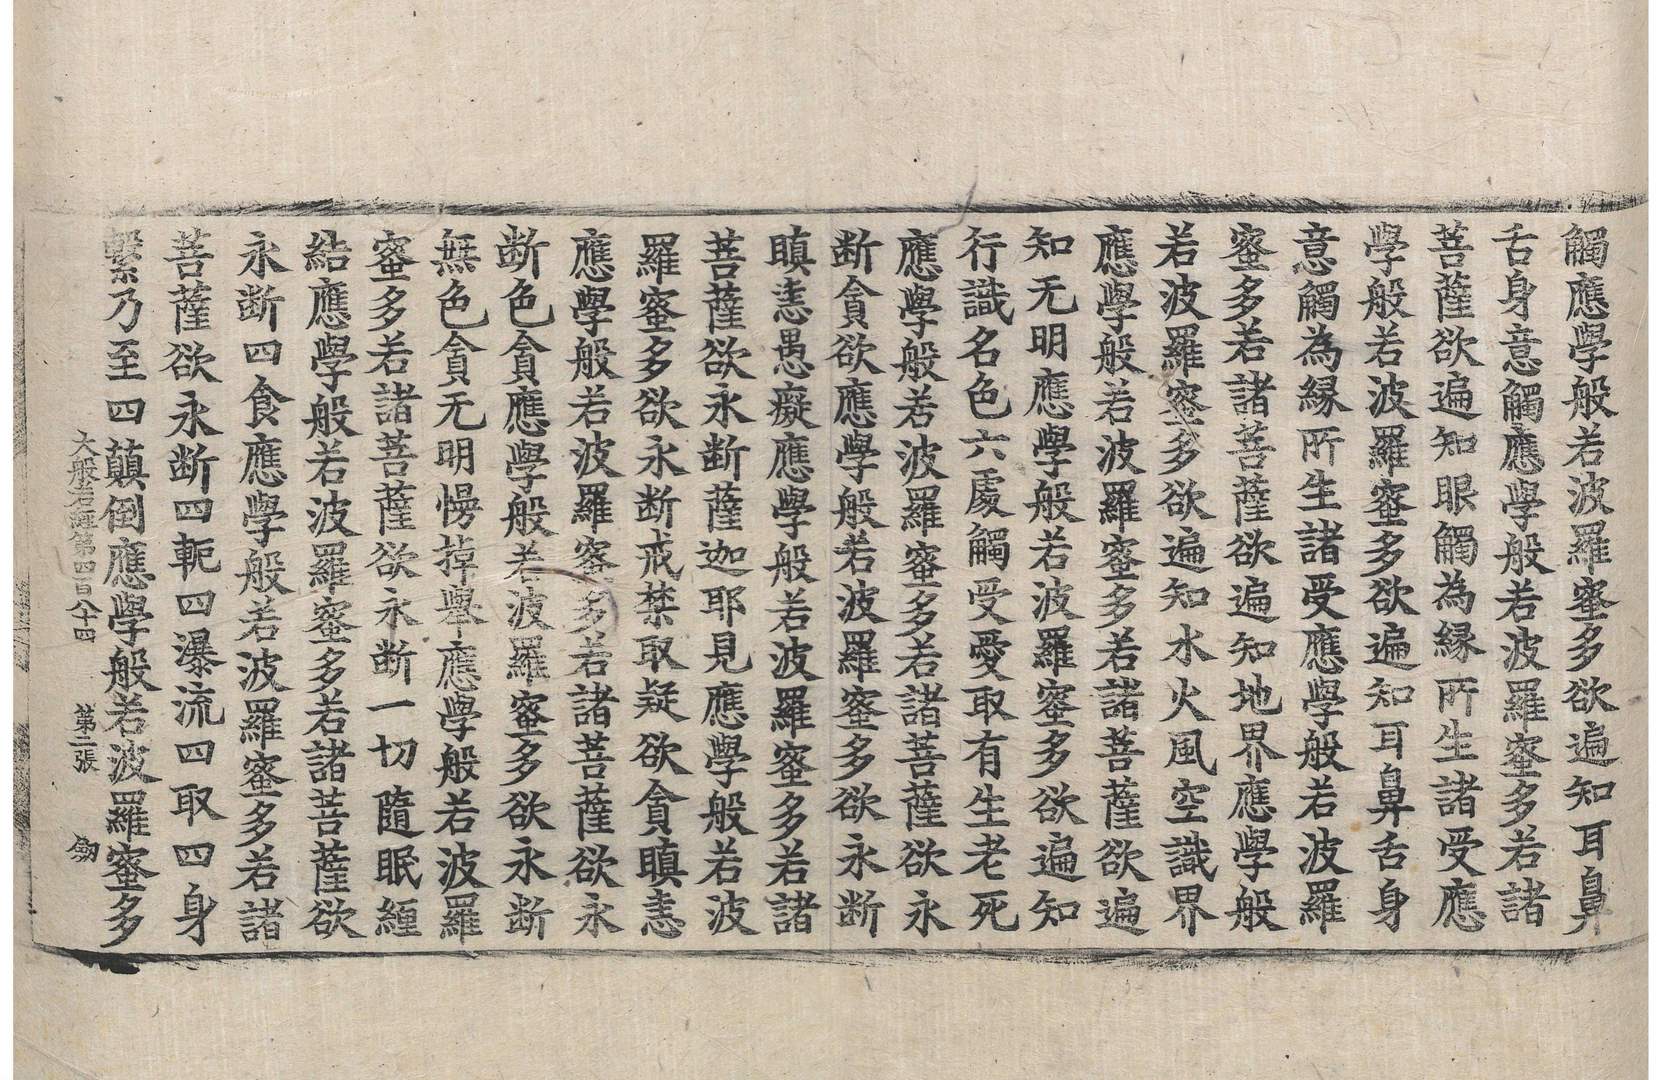 觸應學般若波羅蜜多欲遍知耳鼻
舌身意觸應學般若波羅蜜多若諸
菩薩欲遍知眼觸為緣所生諸受應
學般若波羅蜜多欲遍知耳鼻舌身
意觸為緣所生諸受應學般若波羅
蜜多若諸菩薩欲遍知地界應學般
若波羅蜜多欲遍知水火風空識界
應學般若波羅蜜多若諸菩薩欲遍
知无明應學般若波羅蜜多欲遍知
行識名色六處觸受愛取有生老死
應學般若波羅蜜多若諸菩薩欲永
断貪欲應學般若波羅蜜多欲永断
瞋恚愚癡應學般若波羅蜜多若諸
菩薩欲永断薩迦耶見應學般若波
羅蜜多欲永断戒禁取疑欲貪瞋恚
應學般若波羅蜜多若諸菩薩欲永
断色貪應學般若波羅蜜多欲永断
無色貪无明慢掉舉應學般若波羅
蜜多若諸菩薩欲永断一切隨眠纏
結應學般若波羅蜜多若諸菩薩欲
永断四食應學般若波羅蜜多若諸
菩薩欲永断四軛四瀑流四取四身
繫乃至四顛倒應學般若波羅蜜多
大般若經第四百八十四 第二張 劒